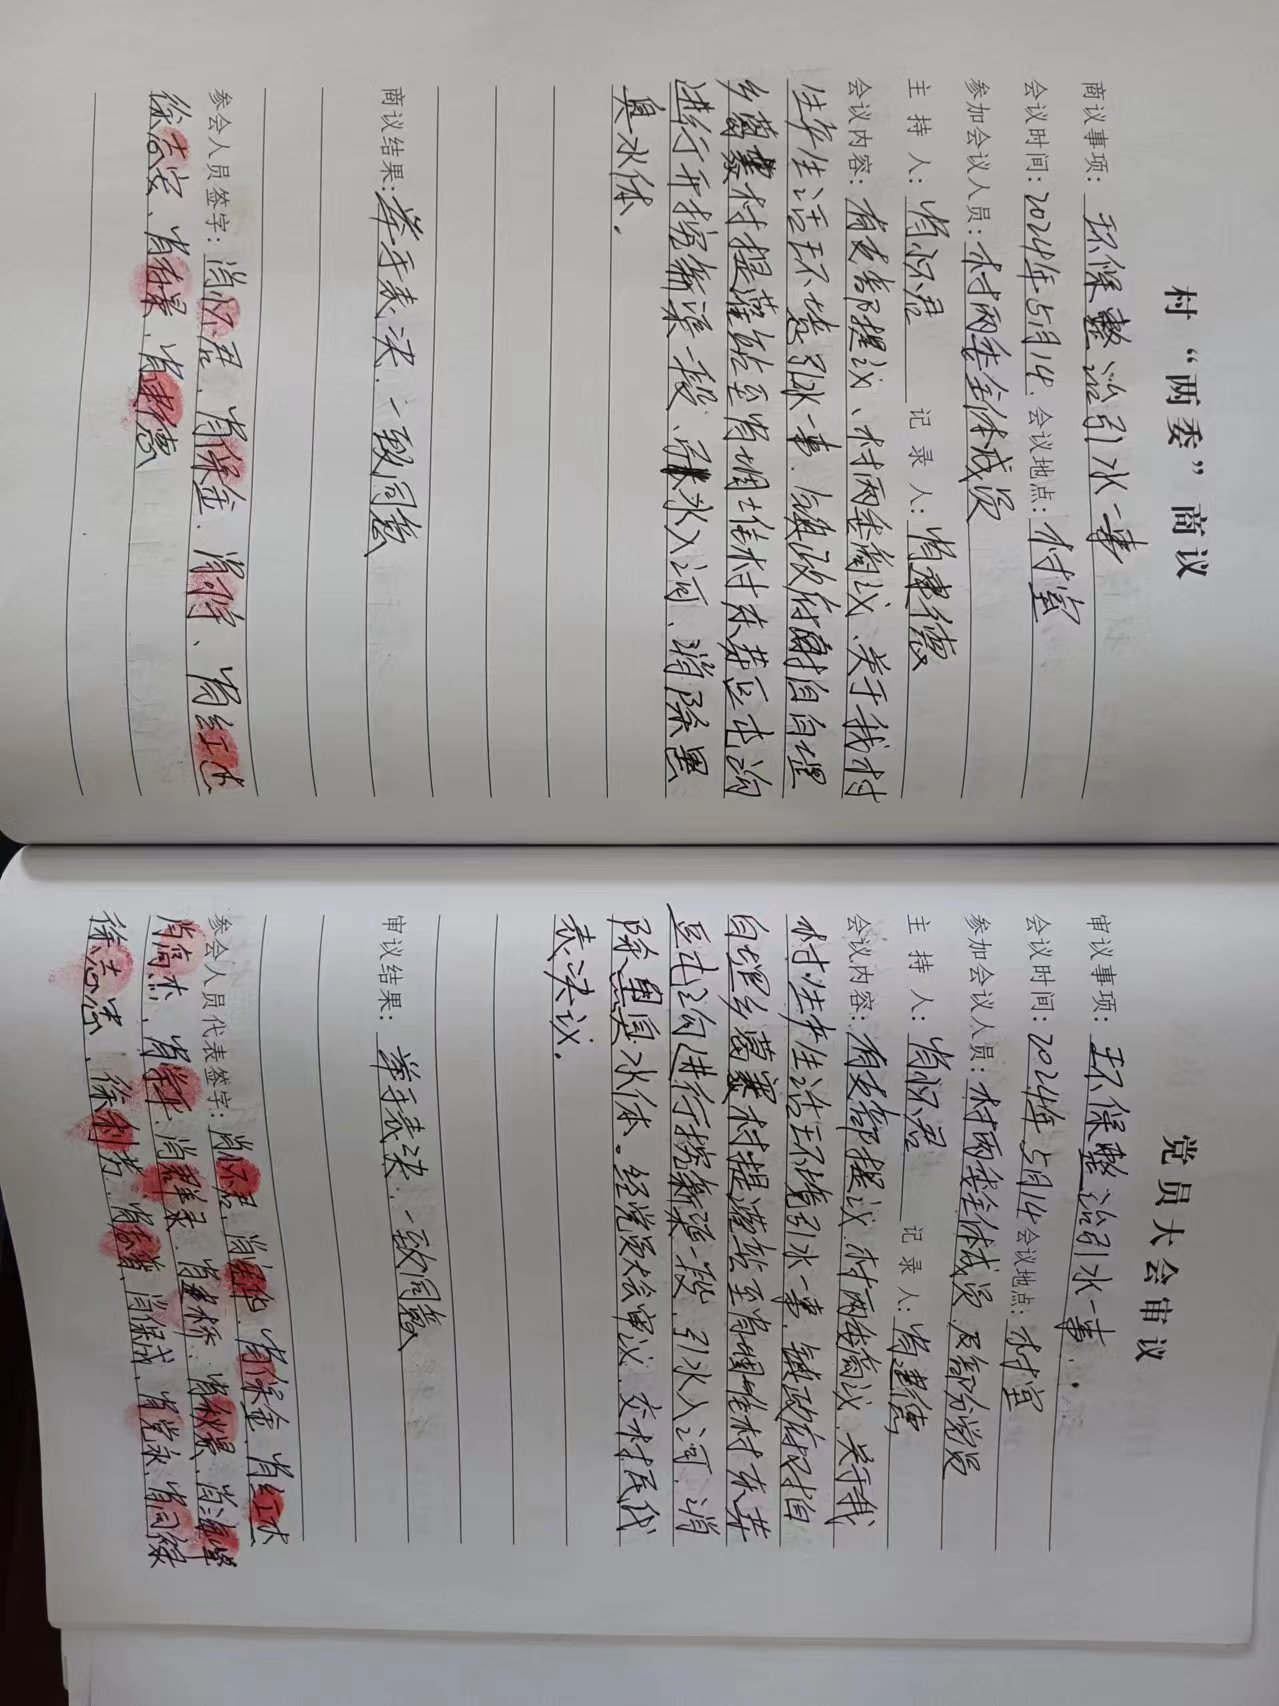 村“两委”商议
商议事项: 环保整治引水一事
会议时间: 2024年5月14. 会议地点: 村室
参加会议人员: 村两委全体成员
主 持 人: 肖怀君 记 录 人: 肖建德
会议内容: 有支部提议、村两委商议、关于我村
生产生活环境引水一事.镇政府对自
乡 村提灌站至肖 堆村东 豆屯沟
进行开挖新渠一段、引水入河、消除黑
臭水体.
商议结果: 举手表决.一致同意
参会人员签字: 肖怀君、肖保金.肖 、肖红杰
徐志安、肖 、肖建德
党员大会审议
审议事项: 环保整治引水一事.
会议时间: 2024年5月14 会议地点: 村室
参加会议人员: 村两委全体成员及部分党员
主 持 人: 肖怀君 记 录 人: 肖建德
会议内容: 有支部提议.村两委商议.关于我
村生产生活环境引水一事.镇政府对自
乡 村提灌站至肖 堆村东
豆屯沟进行挖新渠一段.引水入河.消
除黑臭水体。经党员大会审议.交村民代
表决议.
审议结果: 举手表决.一致同意
参会人员代表签字: 肖怀君、肖 、肖保金.肖红杰
肖 杰、肖 、肖 、肖 桥、肖 、肖
徐志忠、徐利 、肖 、肖保成、肖党永、肖